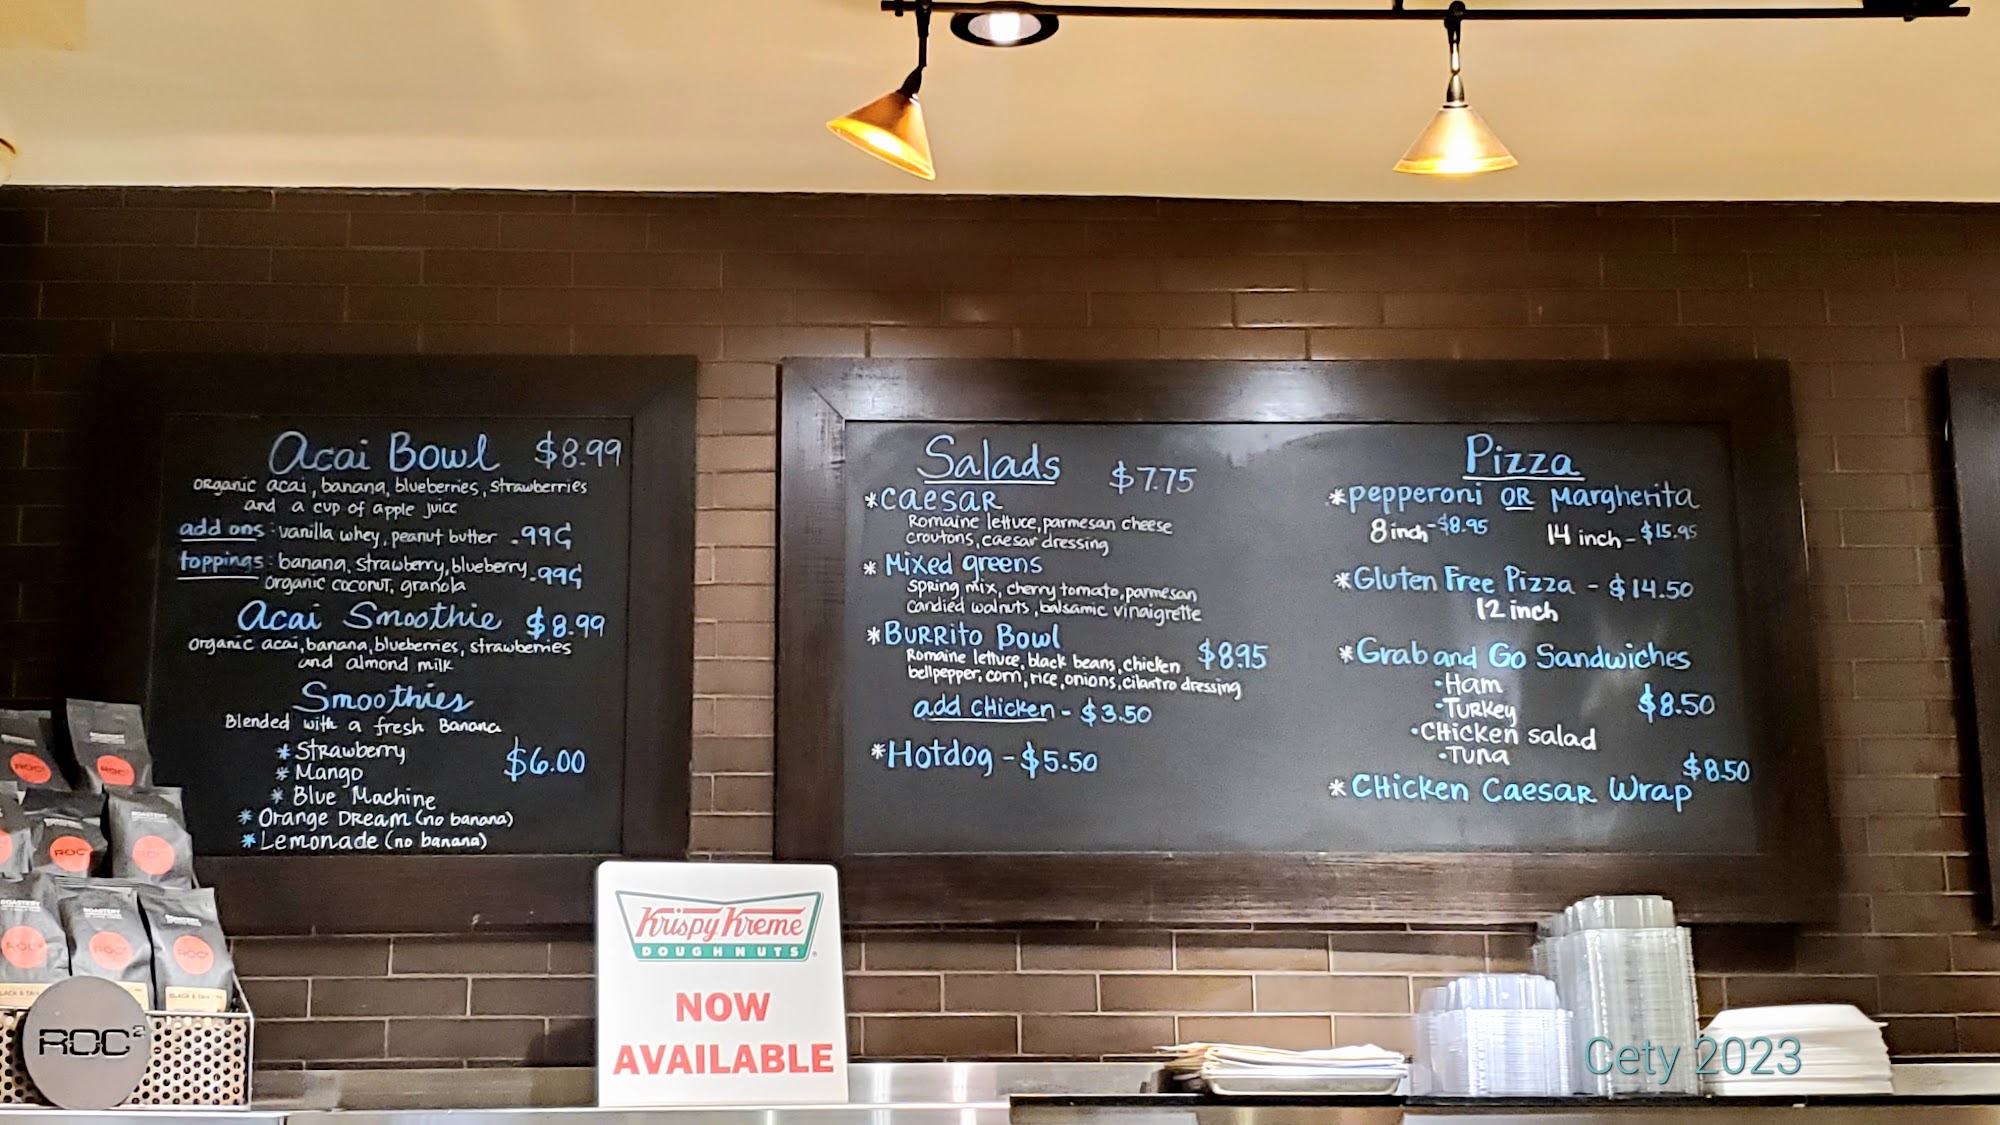 Acai Bowl $8.99
organic acai, banana, blueberries, strawberries
and a cup of apple juice
add ons: vanilla whey, peanut butter .99¢
toppings: banana, strawberry, blueberry .99¢
organic coconut, granola
Acai Smoothie $8.99
organic acai, banana, blueberries, strawberries
and almond milk
Smoothies
Blended with a fresh Banana
* Strawberry
$6.00
* Mango
* Blue Machine
* Orange Dream (no banana)
* Lemonade (no banana)
Salads $7.75
*Caesar
Romaine lettuce, parmesan cheese
croutons, caesar dressing
* Mixed greens
Spring mix, cherry tomato, parmesan
candied walnuts, balsamic vinaigrette
*Burrito Bowl $8.95
Romaine lettuce, black beans, chicken
bellpepper, corn, rice, onions, cilantro dressing
add chicken - $3.50
*Hotdog - $5.50
Pizza
*pepperoni OR Margherita
8 inch - $8.95 14 inch - $15.95
*Gluten Free Pizza - $14.50
12 inch
*Grab and Go Sandwiches
• Ham
• Turkey $8.50
• Chicken salad
• Tuna
$8.50
* Chicken Caesar Wrap
Krispy Kreme
DOUGHNUTS
NOW
AVAILABLE
ROC²
Cety 2023